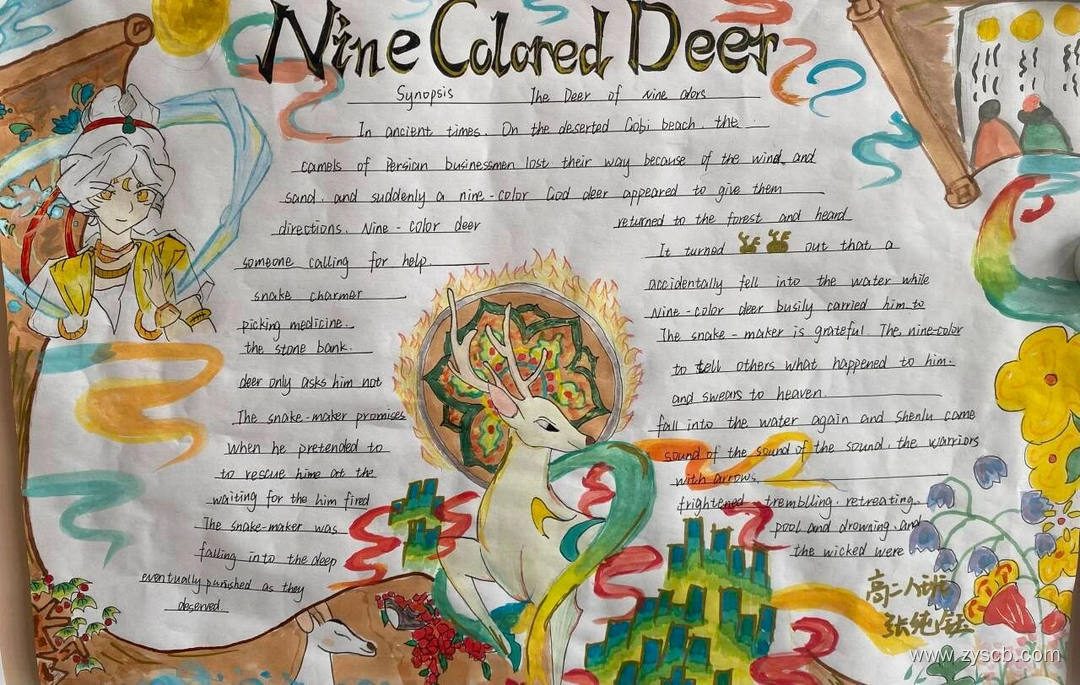 Nine Colored Deer
Synopsis The Deer of Nine colors
In ancient times. On the deserted Gobi beach, the
camels of Persian businessmen lost their way because of the wind, and
sand, and suddenly a nine-color God deer appeared to give them
directions. Nine-color deer returned to the forest and heard
someone calling for help. It turned out that a
snake charmer accidentally fell into the water while
picking medicine. Nine-color deer busily carried him to
the stone bank. The snake-maker is grateful. The nine-color
deer only asks him not to tell others what happened to him.
The snake-maker promises and swears to heaven.
When he pretended to fall into the water again and Shenlu came
to rescue hime at the sound of the sound of the sound, the warriors
waiting for the him fired with arrows.
The snake-maker was frightened, tremblling, retreating,
falling into the deep pool and drowning, and
eventually punished as they the wicked were
deserved
高二八班
张纯
www.zyscb.com